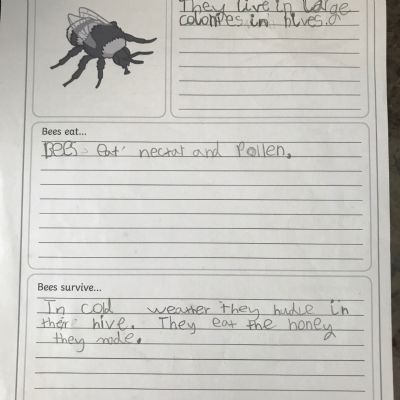 They live in large
colonpes in hives.
Bees eat...
Bees eat nectar and Pollen.
Bees survive...
In cold weather they hudle in
their hive. They eat the honey
they made.